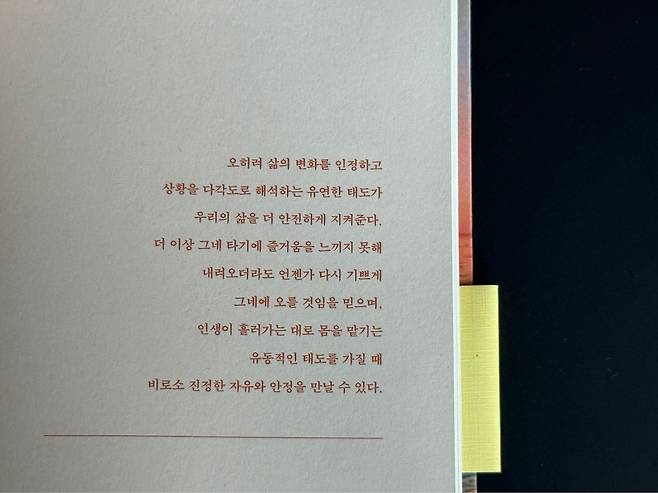 오히려 삶의 변화를 인정하고
상황을 다각도로 해석하는 유연한 태도가
우리의 삶을 더 안전하게 지켜준다.
더 이상 그네 타기에 즐거움을 느끼지 못해
내려오더라도 언젠가 다시 기쁘게
그네에 오를 것임을 믿으며,
인생이 흘러가는 대로 몸을 맡기는
유동적인 태도를 가질 때
비로소 진정한 자유와 안정을 만날 수 있다.